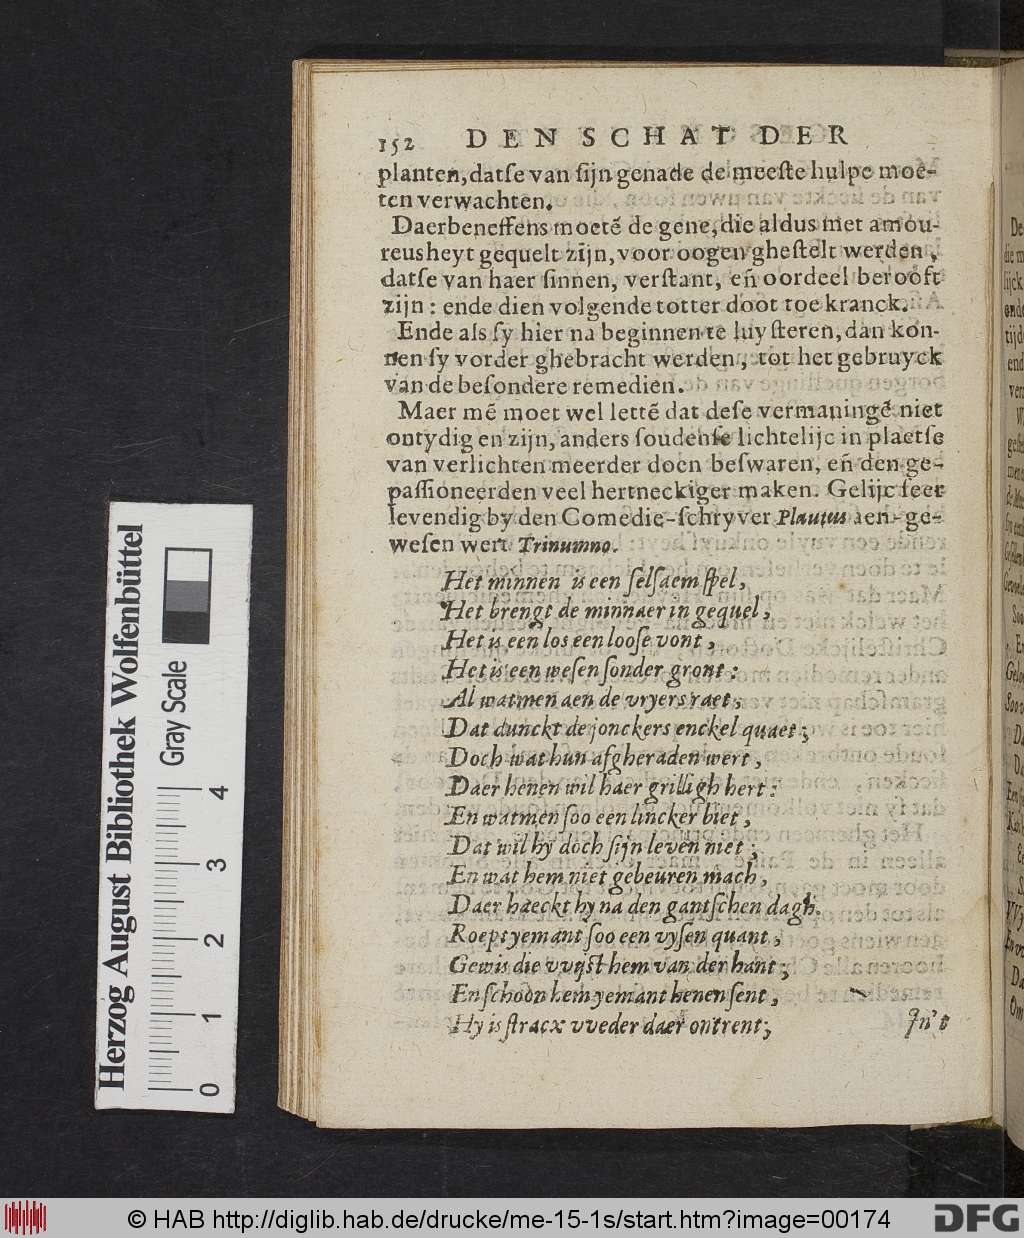 152 DEN SCHAT DER
planten, datſe van ſijn genade de meeſte hulpe moe-
ten verwachten.
Daerbeneffens moetē de gene, die aldus met amou-
reusheyt gequelt zijn, voor oogen gheſtelt werden,
datſe van haer ſinnen, verſtant, eñ oordeel berooft
zijn: ende dien volgende totter doot toe kranck.
Ende als ſy hier na beginnen te luyſteren, dan kon-
nen ſy vorder ghebracht werden, tot het gebruyck
van de beſondere remedien.
Maer mē moet wel lettē dat deſe vermaningē niet
ontydig en zijn, anders ſoudenſe lichtelijc in plaetſe
van verlichten meerder doen beſwaren, eñ den ge-
paſſioneerden veel hertneckiger maken. Gelijc ſeer
levendig by den Comedie-ſchryver Plautus aen-ge-
weſen wert Trinumno.
Het minnen is een ſelſaem ſpel,
Het brengt de minnaer in gequel,
Het is een los een looſe vont,
Het is een weſen ſonder gront:
Al watmen aen de vryers raet,
Dat dunckt de jonckers enckel quaet;
Doch wat hun afgheraden wert,
Daer henen wil haer grilligh hert:
En watmen ſoo een lincker biet,
Dat wil hy doch ſijn leven niet;
En wat hem niet gebeuren mach,
Daer haeckt hy na den gantſchen dagh.
Roept yemant ſoo een vyſen quant,
Gewis die vvijſt hem van der hant;
En ſchoon hem yemant henen ſent,
Hy is ſtracx vveder daer ontrent;
In't
Herzog August Bibliothek Wolfenbüttel
Gray Scale
0 1 2 3 4
© HAB http://diglib.hab.de/drucke/me-15-1s/start.htm?image=00174
DFG